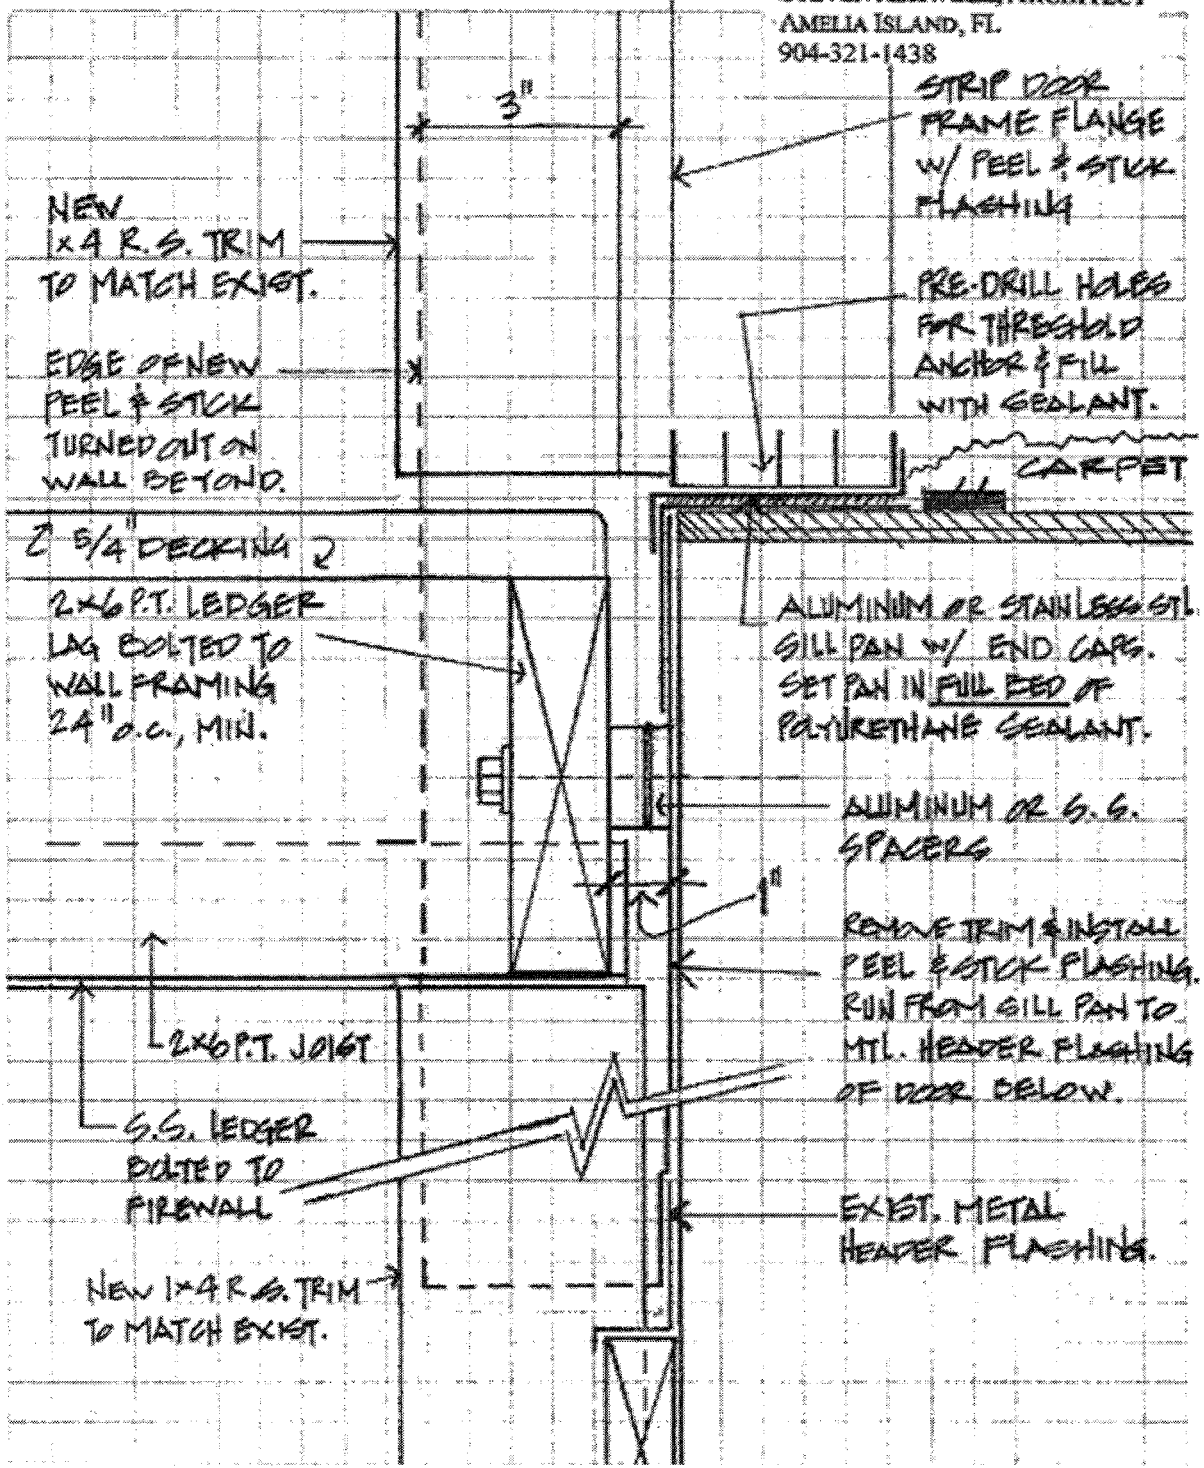 ARCHITECT
AMELIA ISLAND, FL
904-321-1438
STRIP DOOR
FRAME FLANGE
W/ PEEL & STICK
FLASHING
3"
NEW
1x4 R.S. TRIM
TO MATCH EXIST.
PRE-DRILL HOLES
FOR THRESHOLD
ANCHOR & FILL
WITH SEALANT.
EDGE OF NEW
PEEL & STICK
TURNED OUT ON
WALL BEYOND.
CARPET
5/4" DECKING
2x6 P.T. LEDGER
LAG BOLTED TO
WALL FRAMING
24" o.c., MIN.
ALUMINUM OR STAINLESS STL.
SILL PAN W/ END CAPS.
SET PAN IN FULL BED OF
POLYURETHANE SEALANT.
ALUMINUM OR S.S.
SPACERS
1"
REMOVE TRIM & INSTALL
PEEL & STICK FLASHING.
RUN FROM SILL PAN TO
MTL. HEADER FLASHING
OF DOOR BELOW.
2x6 P.T. JOIST
S.S. LEDGER
BOLTED TO
FIREWALL
EXIST. METAL
HEADER FLASHING.
NEW 1x4 R.S. TRIM
TO MATCH EXIST.